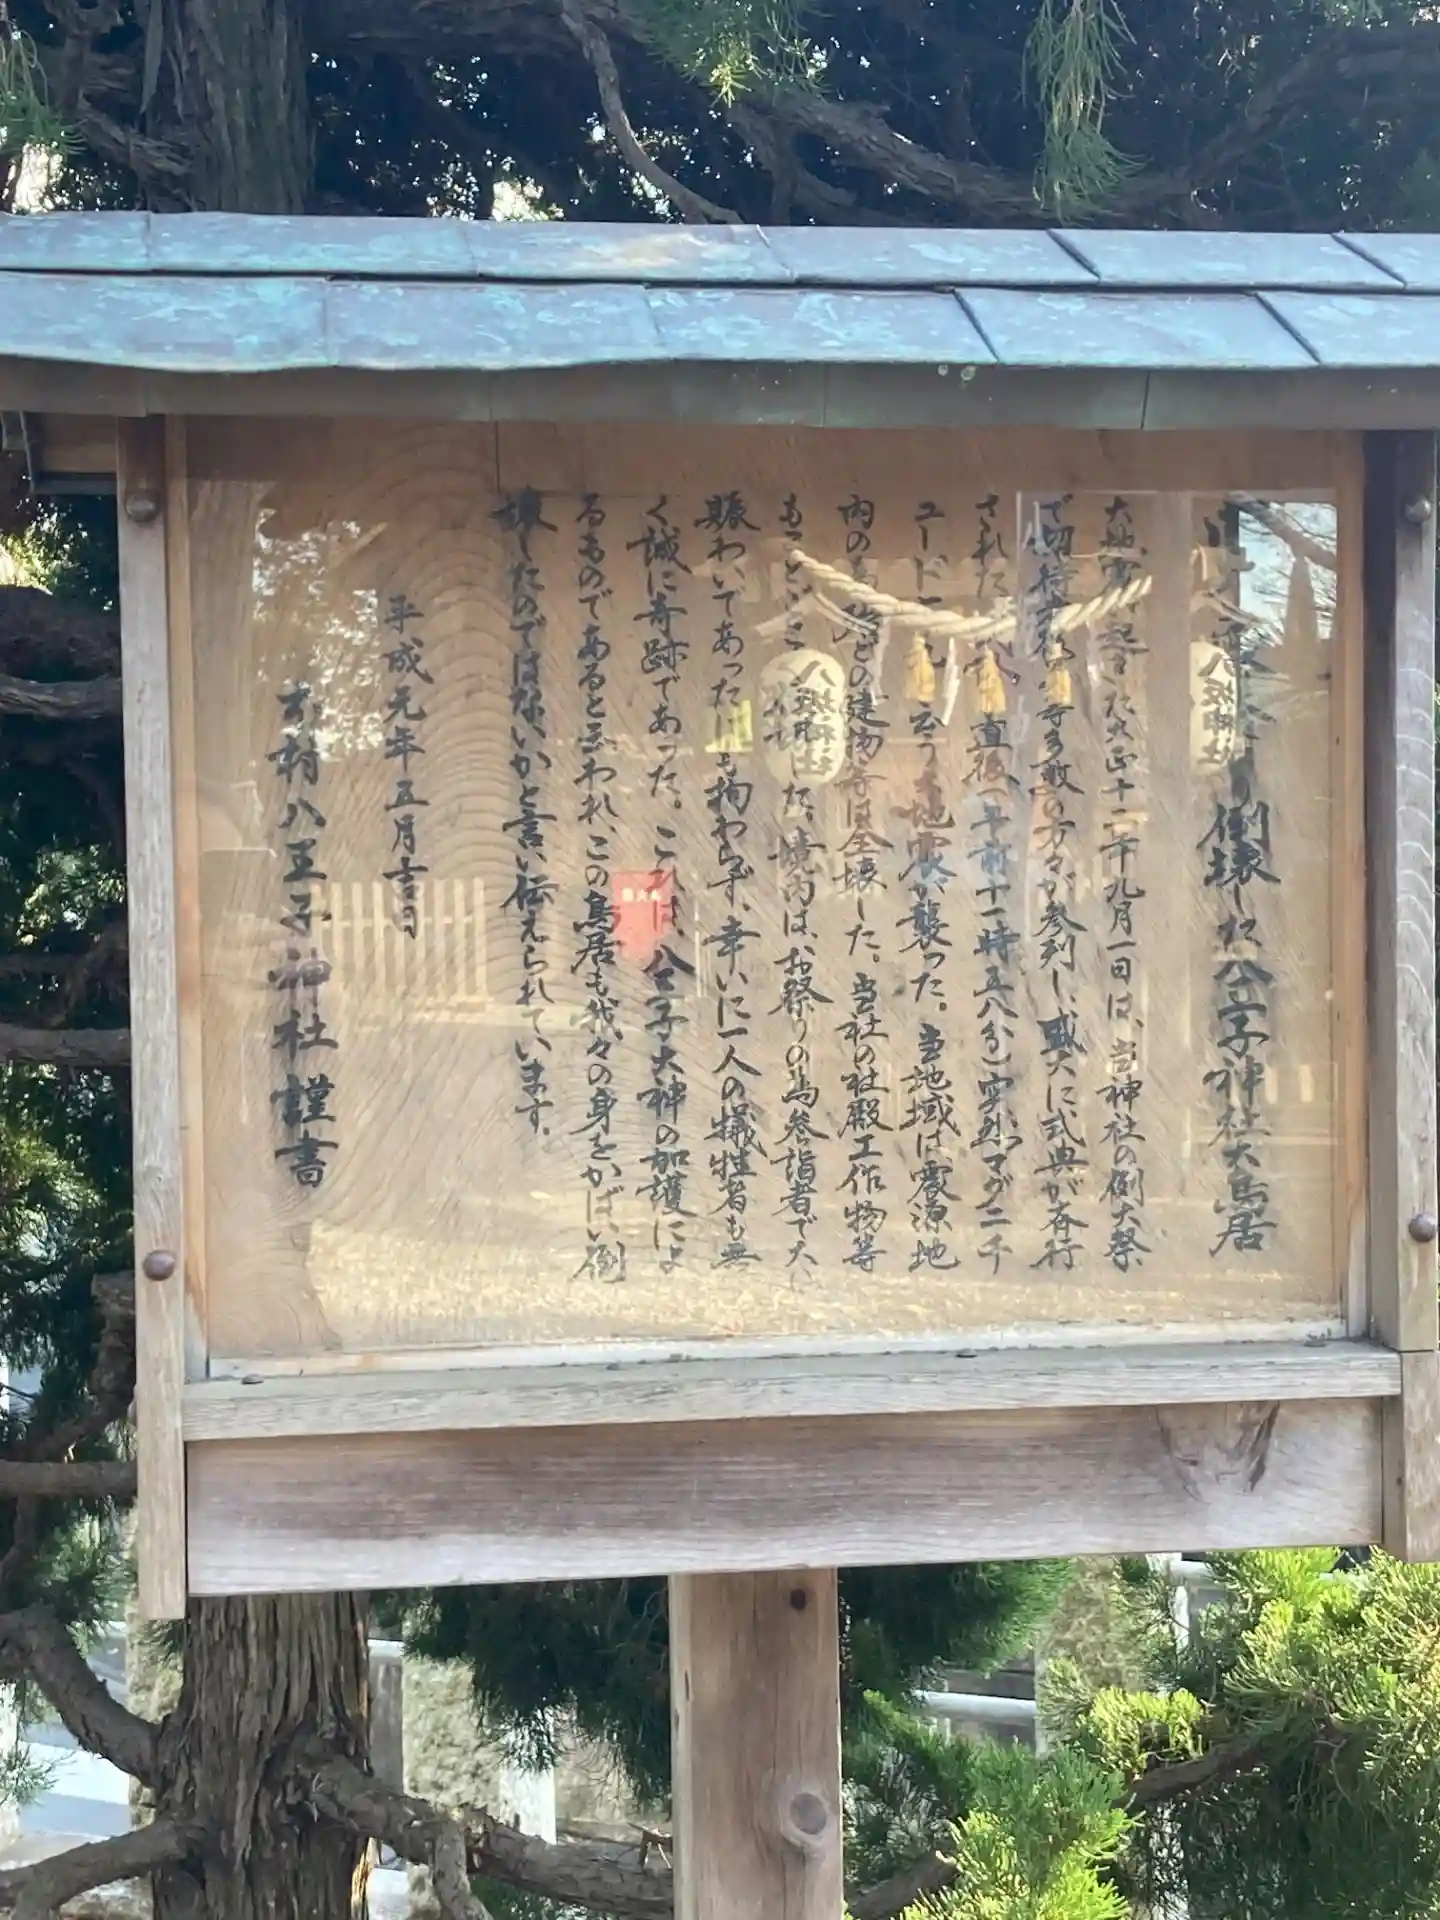 倒壊した八王子神社大鳥居
大地震が起きた大正十二年九月一日は、当神社の例大祭
で氏子多数の方々が参列し、盛大に式典が斉行
された 直後(午前十一時五八分)突然マグニチ
ュード 云う大地震が襲った。当地域は震源地
内の為 などの建物等は全壊した。当社の社殿工作物等
も た。境内は、お祭りの為参詣者で大
賑わいであったにも拘わらず、幸いに一人の犠牲者も無
く誠に奇跡であった。これは、八王子大神の加護によ
るものであると云われ、この鳥居も我々の身をかばい倒
壊したのではないかと言い伝えられています。
平成元年五月吉日
村八王子神社謹書
八坂神社
八坂神社